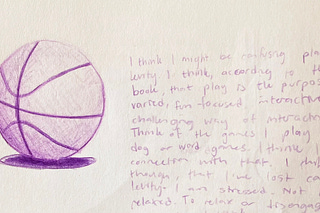 I think I might be confusing play
levity. I think, according to th
book, that play is the purpos
varied, fun-focused, interactive
challenging way of interactin
Think of the games I play
dog or word games. I think I
connection with that. I
though, that I've lost
levity. I am stressed. Not
relaxed. To relax or disengage